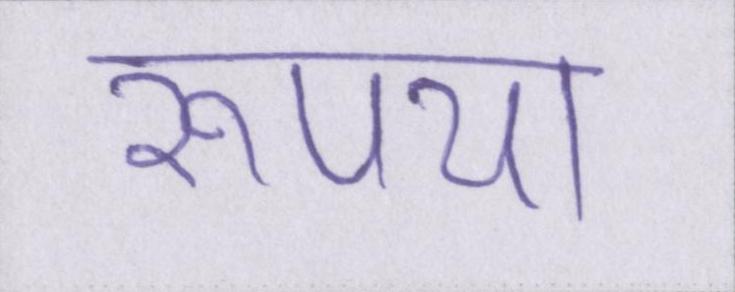 रूपया